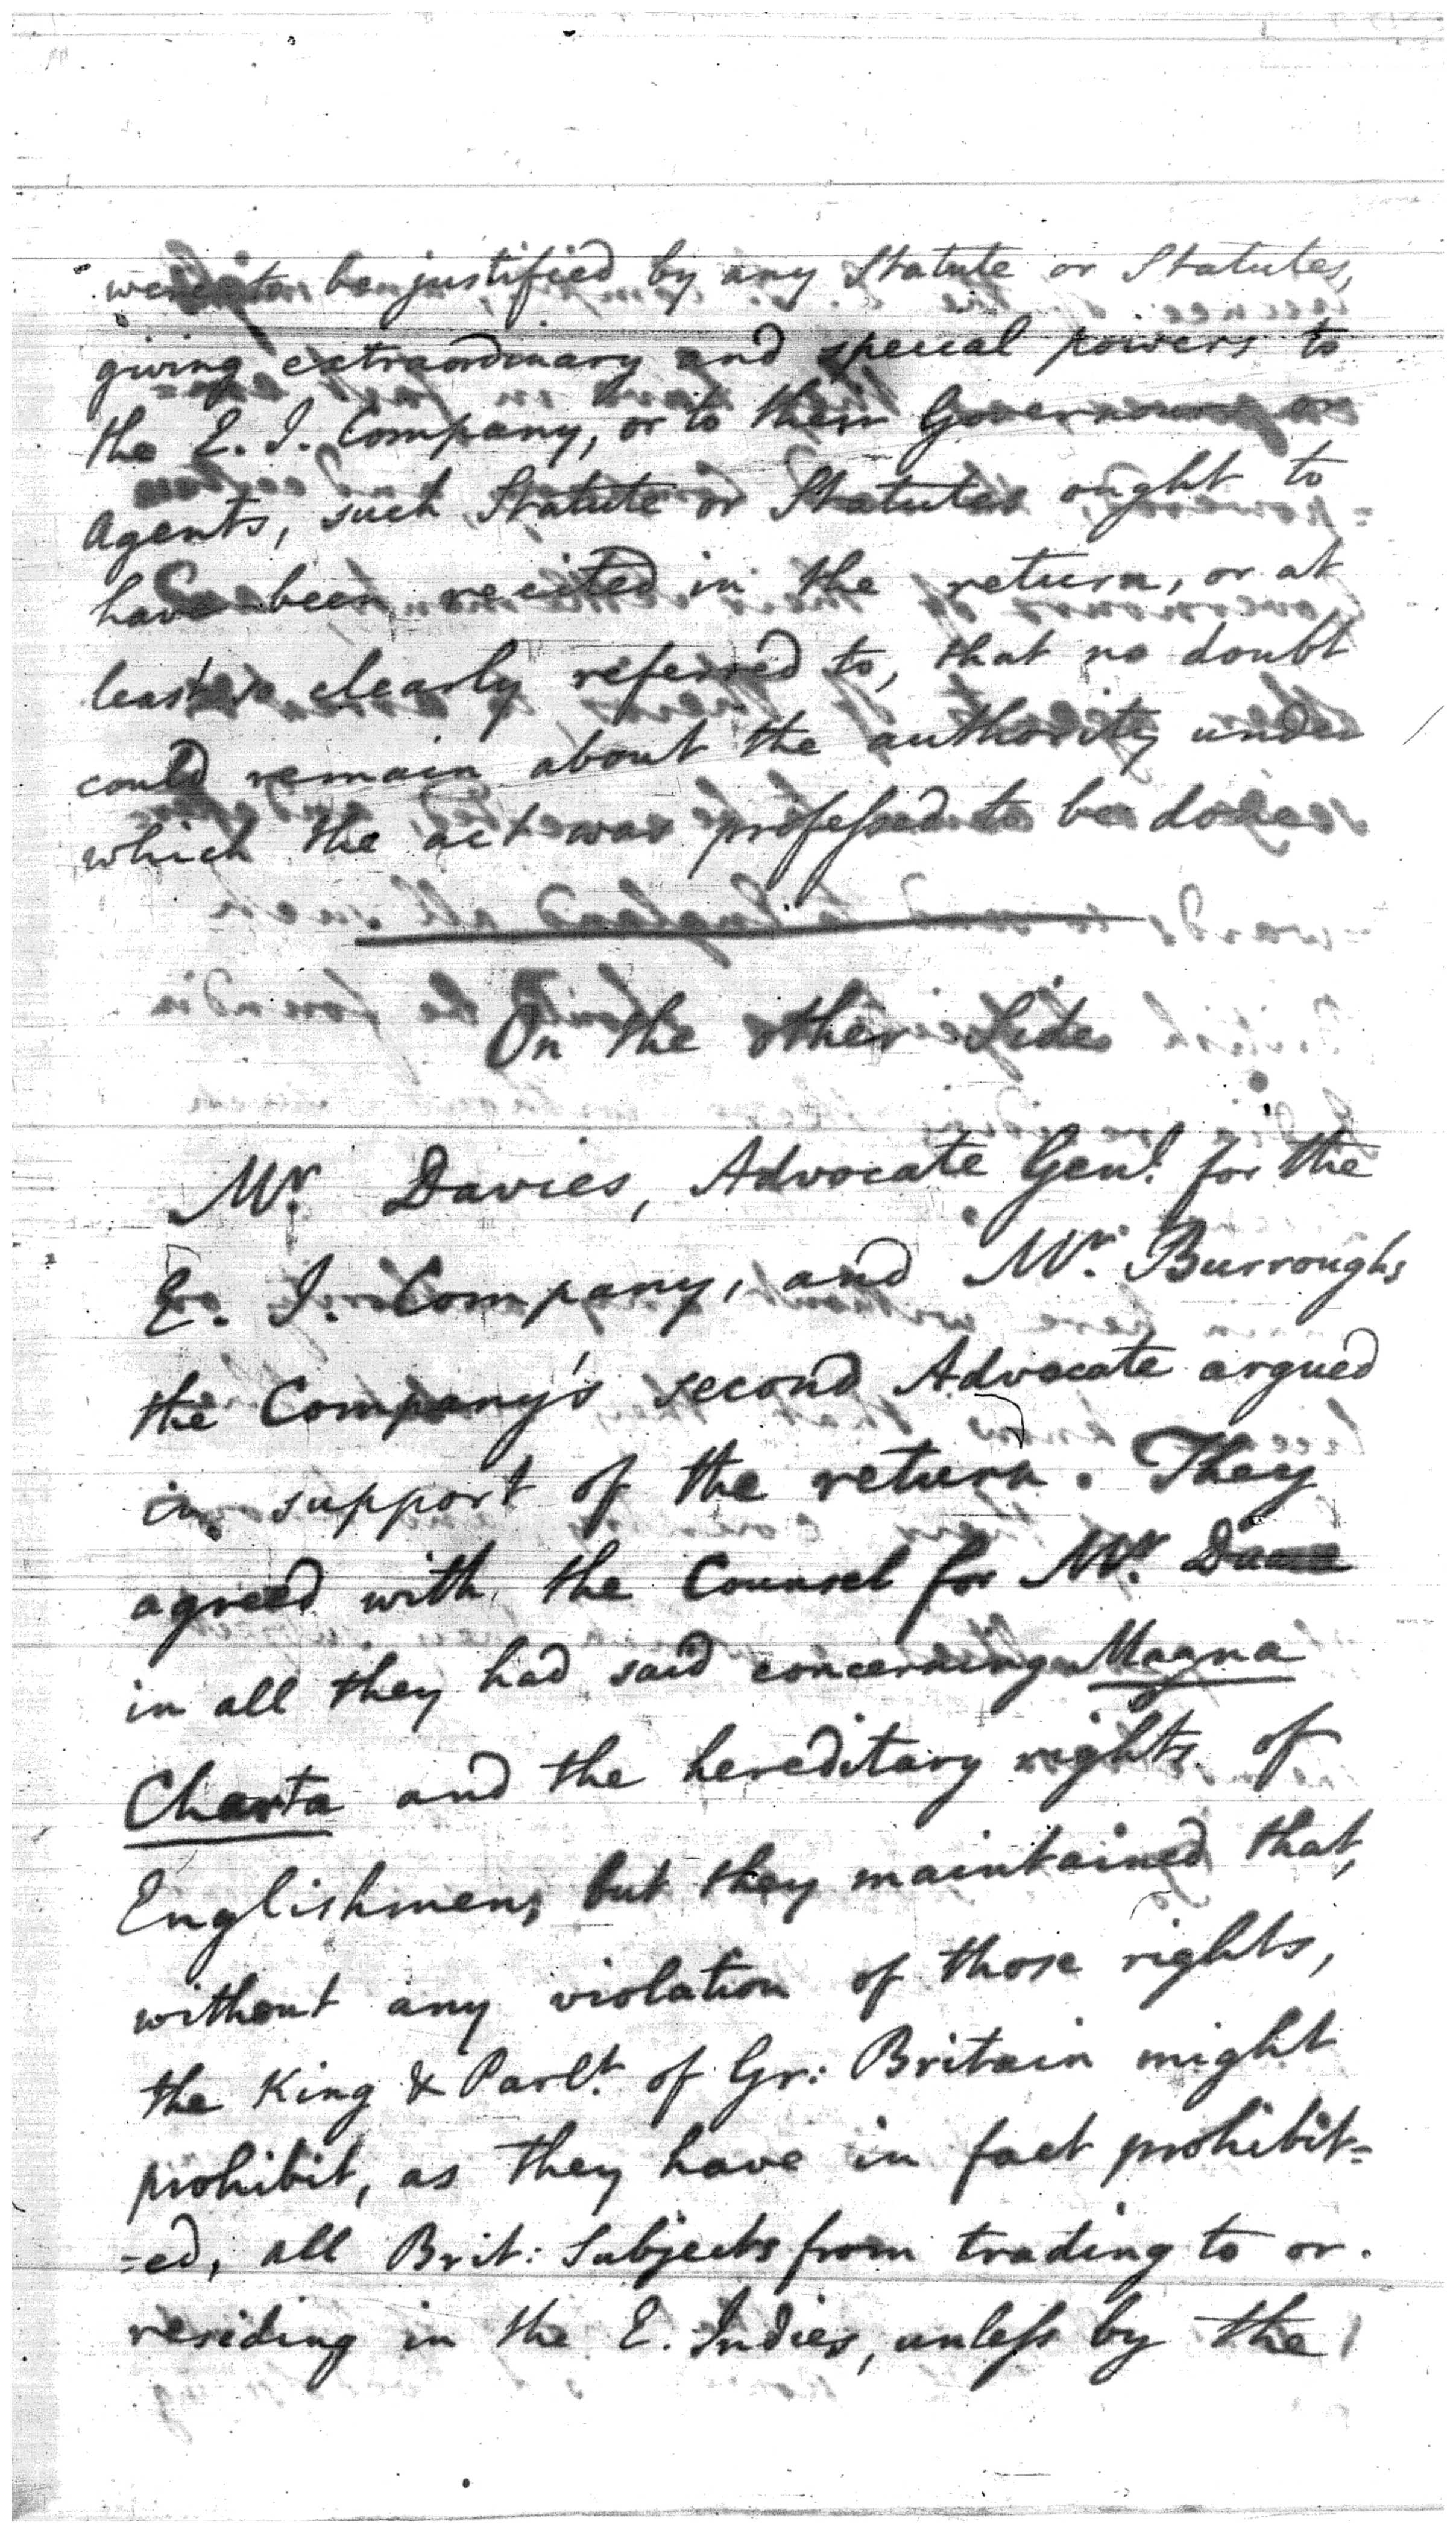 were to be justified by any Statute or Statutes,
giving extraordinary and special powers to
the E. I. Company, or to their Governours or
Agents, such Statute or Statutes ought to
have been recited in the return, or at
least so clearly referred to, that no doubt
could remain about the authority under
which the act was professed to be done
On the other Side
Mr. Davies, Advocate Genl. for the
E. I. Company, and Mr. Burroughs
the Company's second Advocate argued
in support of the return. They
agreed with the Counsel for Mr.
in all they had said concerning Magna
Charta and the hereditary rights of
Englishmen, but they maintained that,
without any violation of those rights,
the King & Parlt. of Gr: Britain might
prohibit, as they have in fact prohibit=
=ed, all Brit: Subjects from trading to or
residing in the E. Indies, unless by the